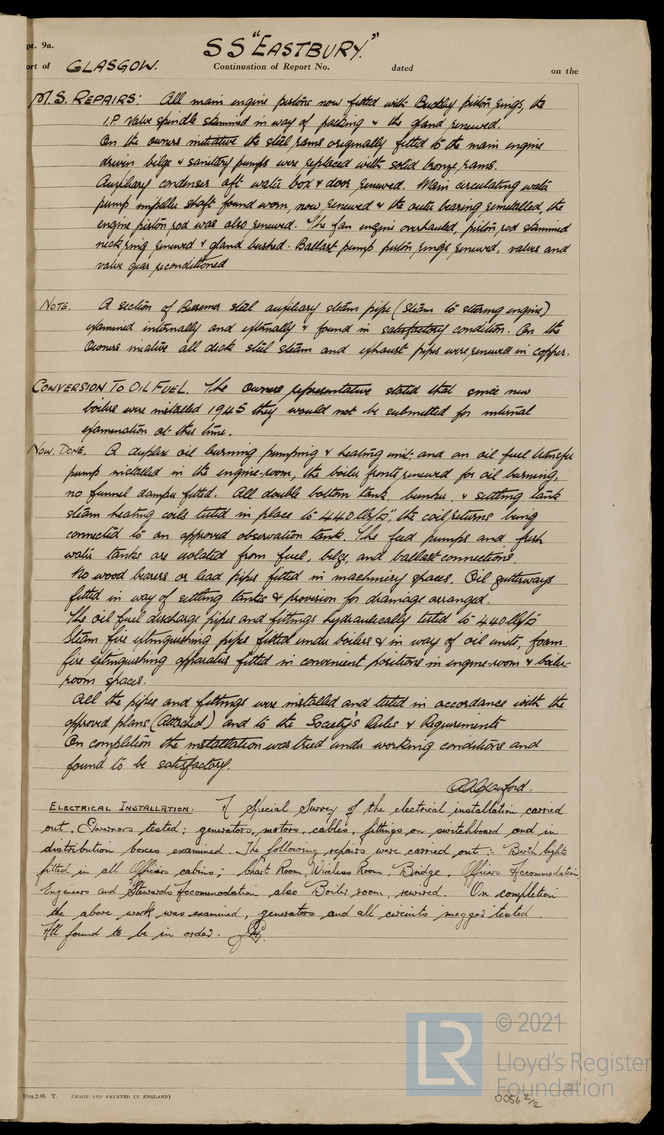 pt. 9a.
SS "EASTBURY."
ort of GLASGOW. Continuation of Report No. dated on the
M.S. REPAIRS: All main engine pistons now fitted with Buckley piston rings, the
I.P. valve spindle skimmed in way of packing & the gland renewed.
On the owners initiative the steel rams originally fitted to the main engine
driven bilge & sanitary pumps were replaced with solid bronze rams.
Auxiliary condenser aft water box & door renewed. Main circulating water
pump impeller shaft found worn, now renewed & the outer bearing remetalled, the
engine piston rod was also renewed. The fan engine overhauled, piston rod skimmed
neck ring renewed & gland bushed. Ballast pump piston rings renewed, valves and
valve gear reconditioned
NOTE. A section of Bessemer steel auxiliary steam pipe (steam to steering engine)
examined internally and externally & found in satisfactory condition. On the
Owners iniative all deck steel steam and exhaust pipes were renewed in copper.
CONVERSION TO OIL FUEL. The owners representative stated that since new
boilers were installed 1945 they would not be submitted for internal
examination at this time.
NOW DONE. A duplex oil burning pumping & heating unit and an oil fuel transfer
pump installed in the engine-room, the boiler fronts renewed for oil burning,
no funnel damper fitted. All double bottom tank, bunker, & settling tank
steam heating coils tested in place to 440 lbs/□", the coil returns being
connected to an approved observation tank. The feed pumps and fresh
water tanks are isolated from fuel, bilge, and ballast connections.
No wood bearers or lead pipes fitted in machinery spaces. Oil gutterways
fitted in way of settling tanks & provision for drainage arranged.
The oil fuel discharge pipes and fittings hydraulically tested to 440 lbs/□"
Steam fire extinguishing pipes fitted under boilers & in way of oil units, foam
fire extinguishing apparatus fitted in convenient positions in engine-room & boiler-
room spaces.
All the pipes and fittings were installed and tested in accordance with the
approved plans (attached) and to the Society's Rules & Requirements
On completion the installation was tried under working conditions and
found to be satisfactory.
ELECTRICAL INSTALLATION. A Special Survey of the electrical installation carried
out. Governors tested; generators, motors, cables, fittings on switchboard and in
distribution boxes examined. The following repairs were carried out :- Berth lights
fitted in all Officers cabins; Chart Room, Wireless Room, Bridge, Officers Accommodation
Engineers and Stewards Accommodation also Boiler room, rewired. On completion
the above work was examined, generators and all circuits megger tested.
All found to be in order.
(MADE AND PRINTED IN ENGLAND)
LR © 2021
Lloyd's Register
Foundation
0056 2/2